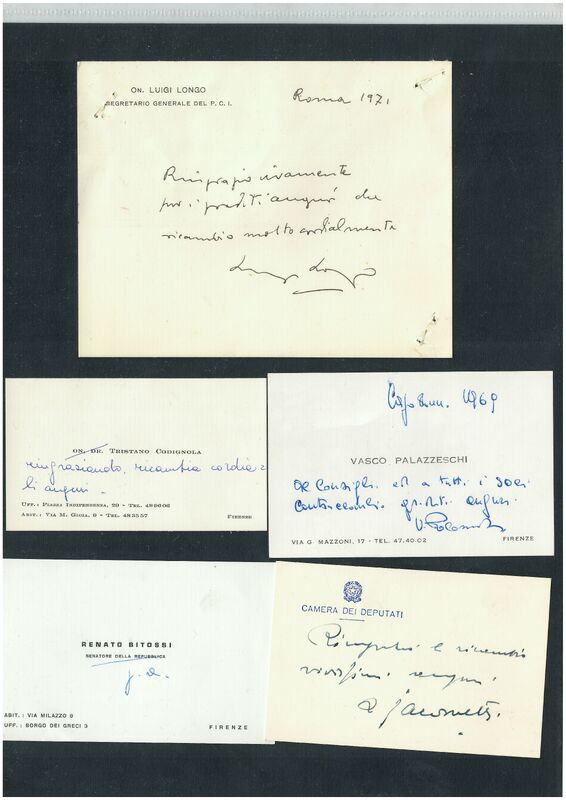 ON. LUIGI LONGO
SEGRETARIO GENERALE DEL P. C. I.
Roma 1971
Ringrazio vivamente
per i graditi auguri che
ricambio molto cordialmente
Luigi Longo
ON. DR. TRISTANO CODIGNOLA
ringraziando, ricambia cordia
li auguri.
UFF.: PIAZZA INDIPENDENZA, 29 - TEL. 489606
ABIT.: VIA M. GIOIA, 9 - TEL. 483557
FIRENZE
1969
VASCO PALAZZESCHI
Al Consiglio ed a tutti i Soci
graditi auguri
VIA G. MAZZONI, 17 - TEL. 47.40.02
FIRENZE
RENATO BITOSSI
SENATORE DELLA REPUBBLICA
ABIT.: VIA MILAZZO 8
UFF.: BORGO DEI GRECI 3
FIRENZE
CAMERA DEI DEPUTATI
e ricambio
vivissimi auguri